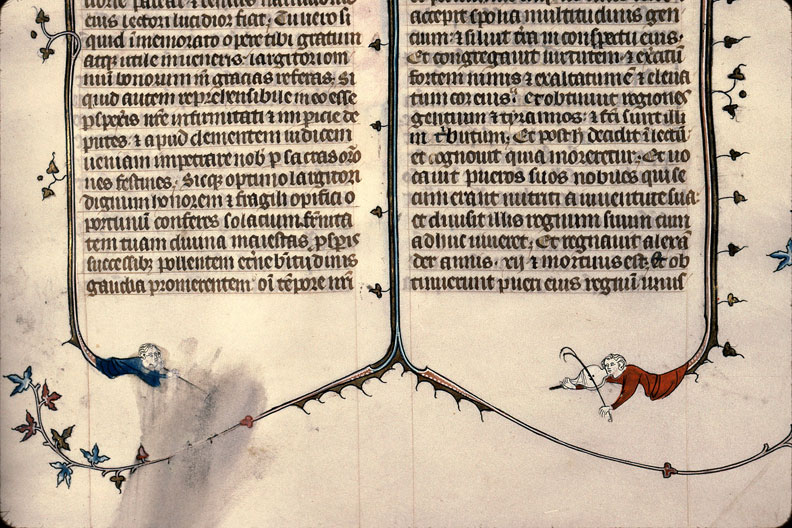 eius lectori lucidior fiat. Tu uero si
quid i memorato ope tibi gratum
atqʒ utile inueneris largitori om
niu bonorum gracias referas. Si
quid autem reprehensibile in eo esse
infirmitati &
putes. & apud clementem iudicem
ueniam impetrare nob p sacras oro
nes festines. Sicqʒ optimo largitori
dignum honorem & fragili opifici o
portunu conferes solacium.
tem tuam diuina maiestas pspis
successibʒ pollentem
gaudia promerentem oi tempore
accepit spolia multitudinis gen
cium & siluit tra in conspectu eius.
Et congregauit uirtutem & exercitu
fortem nimis & exaltatum e & eleua
tum cor eius. Et obtinuit regiones
gentium & tyrannos & fci sunt illi
in tributum. Et post h decidit i lectu
et cognouit quia moreretur. Et uo
cauit pueros suos nobiles qui se
cum erant nutriti a iuuentute sua
et diuisit illis regnum suum cum
adhuc uiueret. Et regnauit alexan
der annis xij & mortuus est. Et ob
tinuerunt pueri eius regnu unus